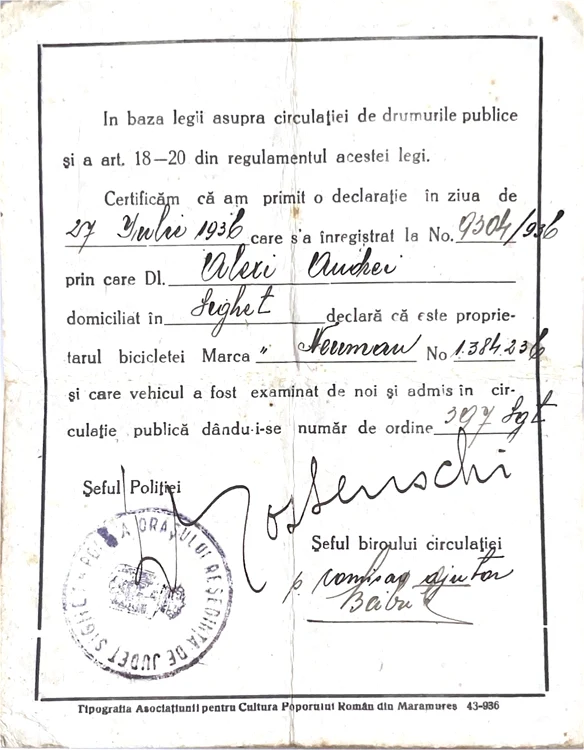 In baza legii asupra circulației de drumurile publice
și a art. 18—20 din regulamentul acestei legi.
Certificăm că am primit o declarație în ziua de
27 Iulie 1936 care s'a înregistrat la No. 9304/936
prin care Dl. Alexi Andrei
domiciliat în Sighet declară că este proprie-
tarul bicicletei Marca „ Neuman No 1.384.236
și care vehicul a fost examinat de noi și admis în cir-
culație publică dându-i-se număr de ordine 397 Sgt
Șeful Poliției
Șeful biroului circulației
p comisar ajutor
POLIȚIA ORAȘULUI REȘEDINȚĂ DE JUDEȚ SIGHET
Tipografia Asociațiunii pentru Cultura Poporului Român din Maramureș 43-936